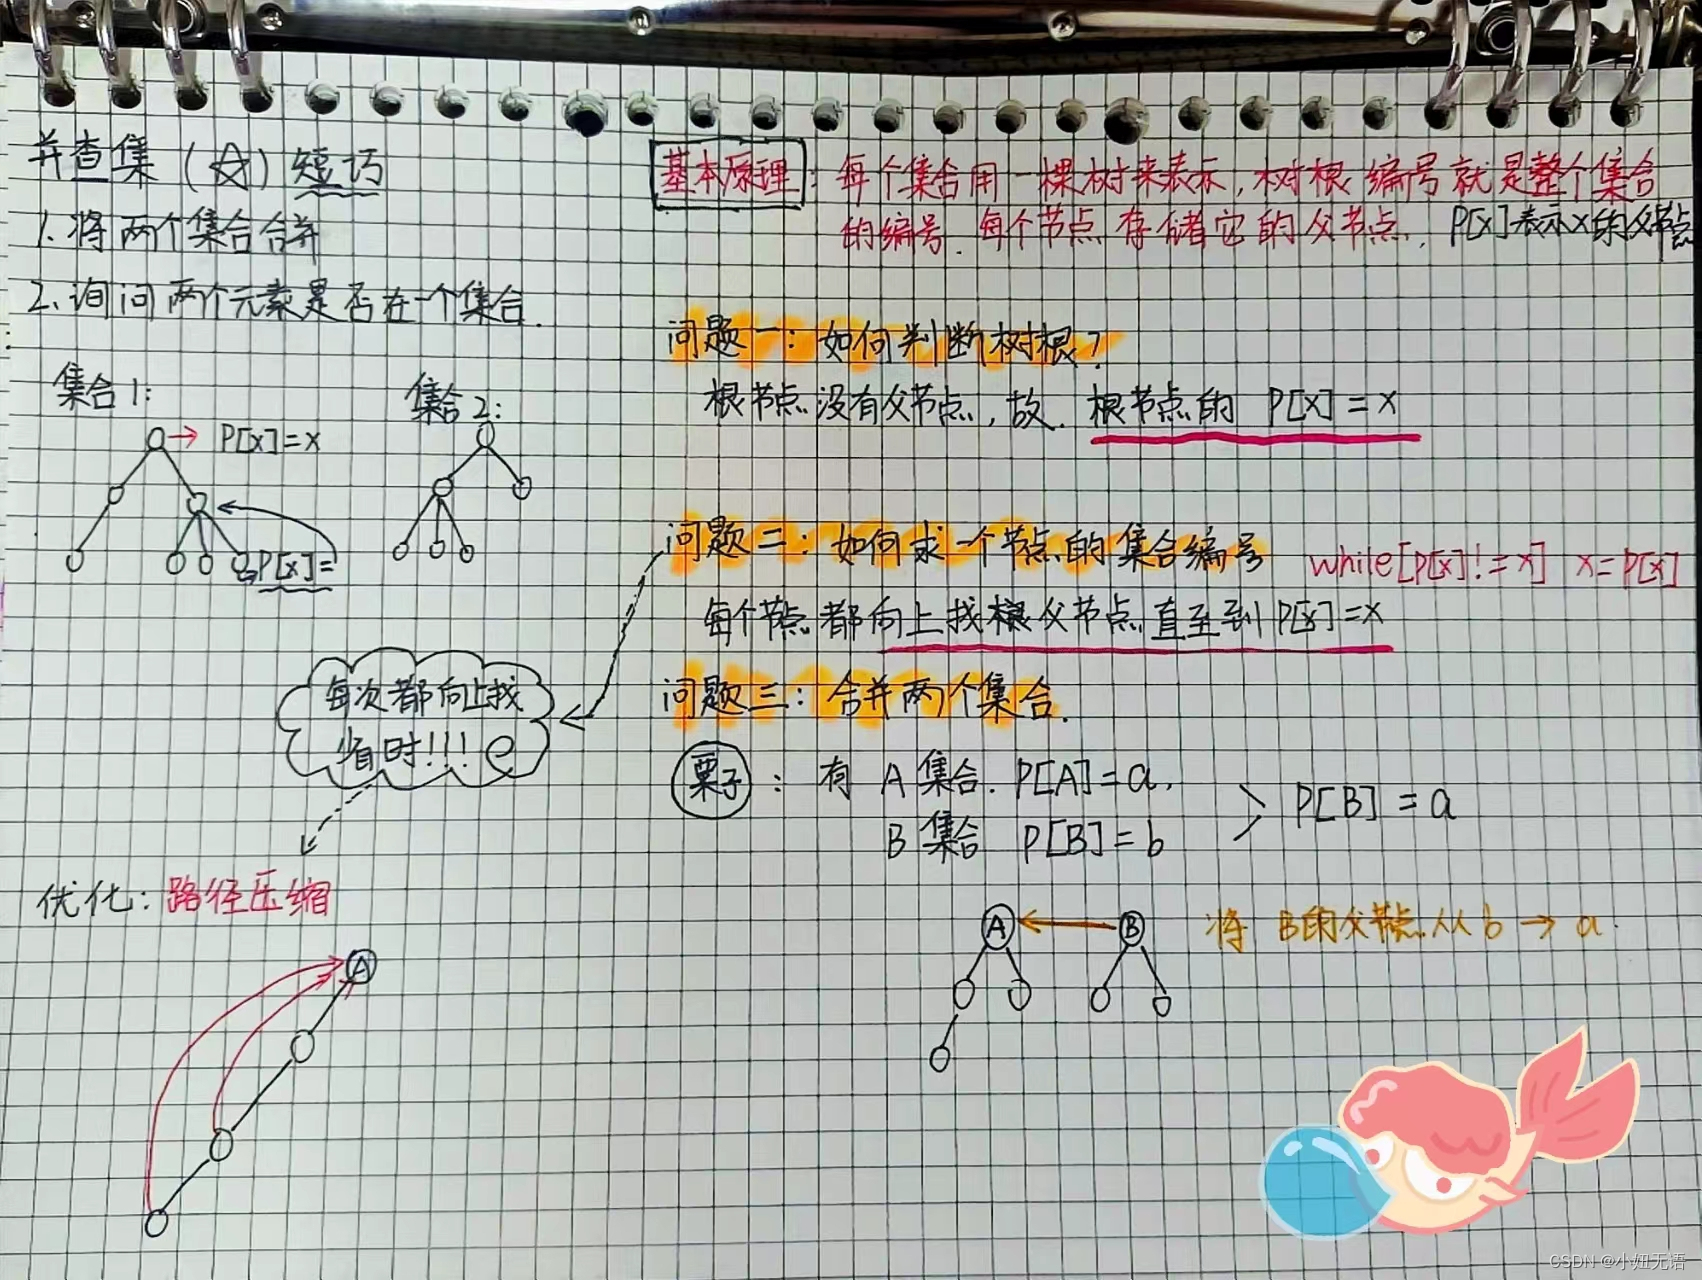 并查集(☆)短巧
1.将两个集合合并
2.询问两个元素是否在一个集合.
集合1:
P[x]=x
P[x]=
集合2:
每次都向上找
省时!!!
优化:路径压缩
A
基本原理:每个集合用一棵树来表示,树根编号就是整个集合
的编号.每个节点存储它的父节点. P[x]表示x的父节点
问题一:如何判断树根?
根节点没有父节点,故.根节点的 P[x]=x
问题二:如何求一个节点的集合编号 while[P[x]!=x] x=P[x]
每个节点都向上找父节点直至到P[x]=x
问题三:合并两个集合.
栗子:有 A 集合. P[A]=a.
B 集合 P[B]=b
> P[B]=a
A ← B 将 B的父节点从b→a.
CSDN @小妞无语